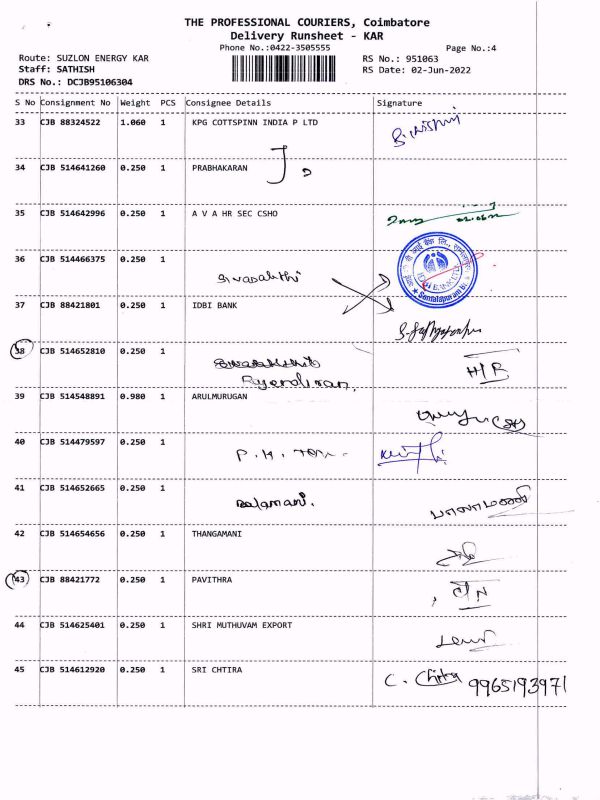 THE PROFESSIONAL COURIERS, Coimbatore
Delivery Runsheet - KAR
Phone No.:0422-3505555 Page No.:4
Route: SUZLON ENERGY KAR RS No.: 951063
Staff: SATHISH RS Date: 02-Jun-2022
DRS No.: DCJB95106304
S No Consignment No Weight PCS Consignee Details Signature
33 CJB 88324522 1.060 1 KPG COTTSPINN INDIA P LTD
34 CJB 514641260 0.250 1 PRABHAKARAN
35 CJB 514642996 0.250 1 A V A HR SEC CSHO
36 CJB 514466375 0.250 1 Sivasakthi
37 CJB 88421801 0.250 1 IDBI BANK
38 CJB 514652810 0.250 1 H/R
39 CJB 514548891 0.980 1 ARULMURUGAN
40 CJB 514479597 0.250 1 P.H.
41 CJB 514652665 0.250 1 Balamani.
42 CJB 514654656 0.250 1 THANGAMANI
43 CJB 88421772 0.250 1 PAVITHRA
44 CJB 514625401 0.250 1 SHRI MUTHUVAM EXPORT
45 CJB 514612920 0.250 1 SRI CHTIRA C. Chitra 9965193971